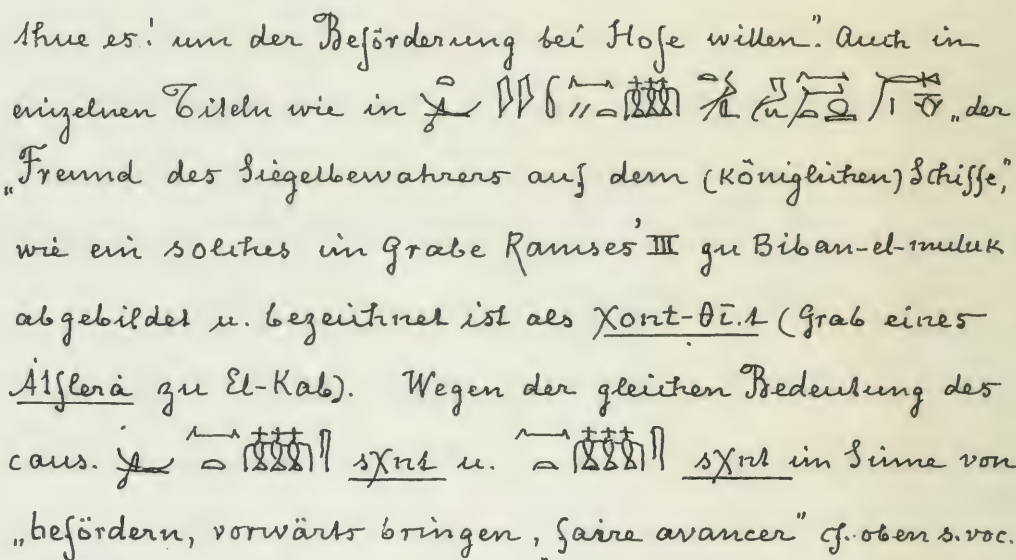 thue es! um der Beförderung bei Hofe willen". Auch in
einzelnen Titeln wie in „der
„Freund des Siegelbewahrers auf dem (Königlichen) Schiffe,"
wie ein solches im Grabe Ramses' III zu Biban-el-muluk
abgebildet u. bezeichnet ist als χont-θī.t (Grab eines
zu El-Kab). Wegen der gleichen Bedeutung des
caus. sχnt u. sχnt im Sinne von
„befördern, vorwärts bringen, faire avancer" cf. oben s. voc.